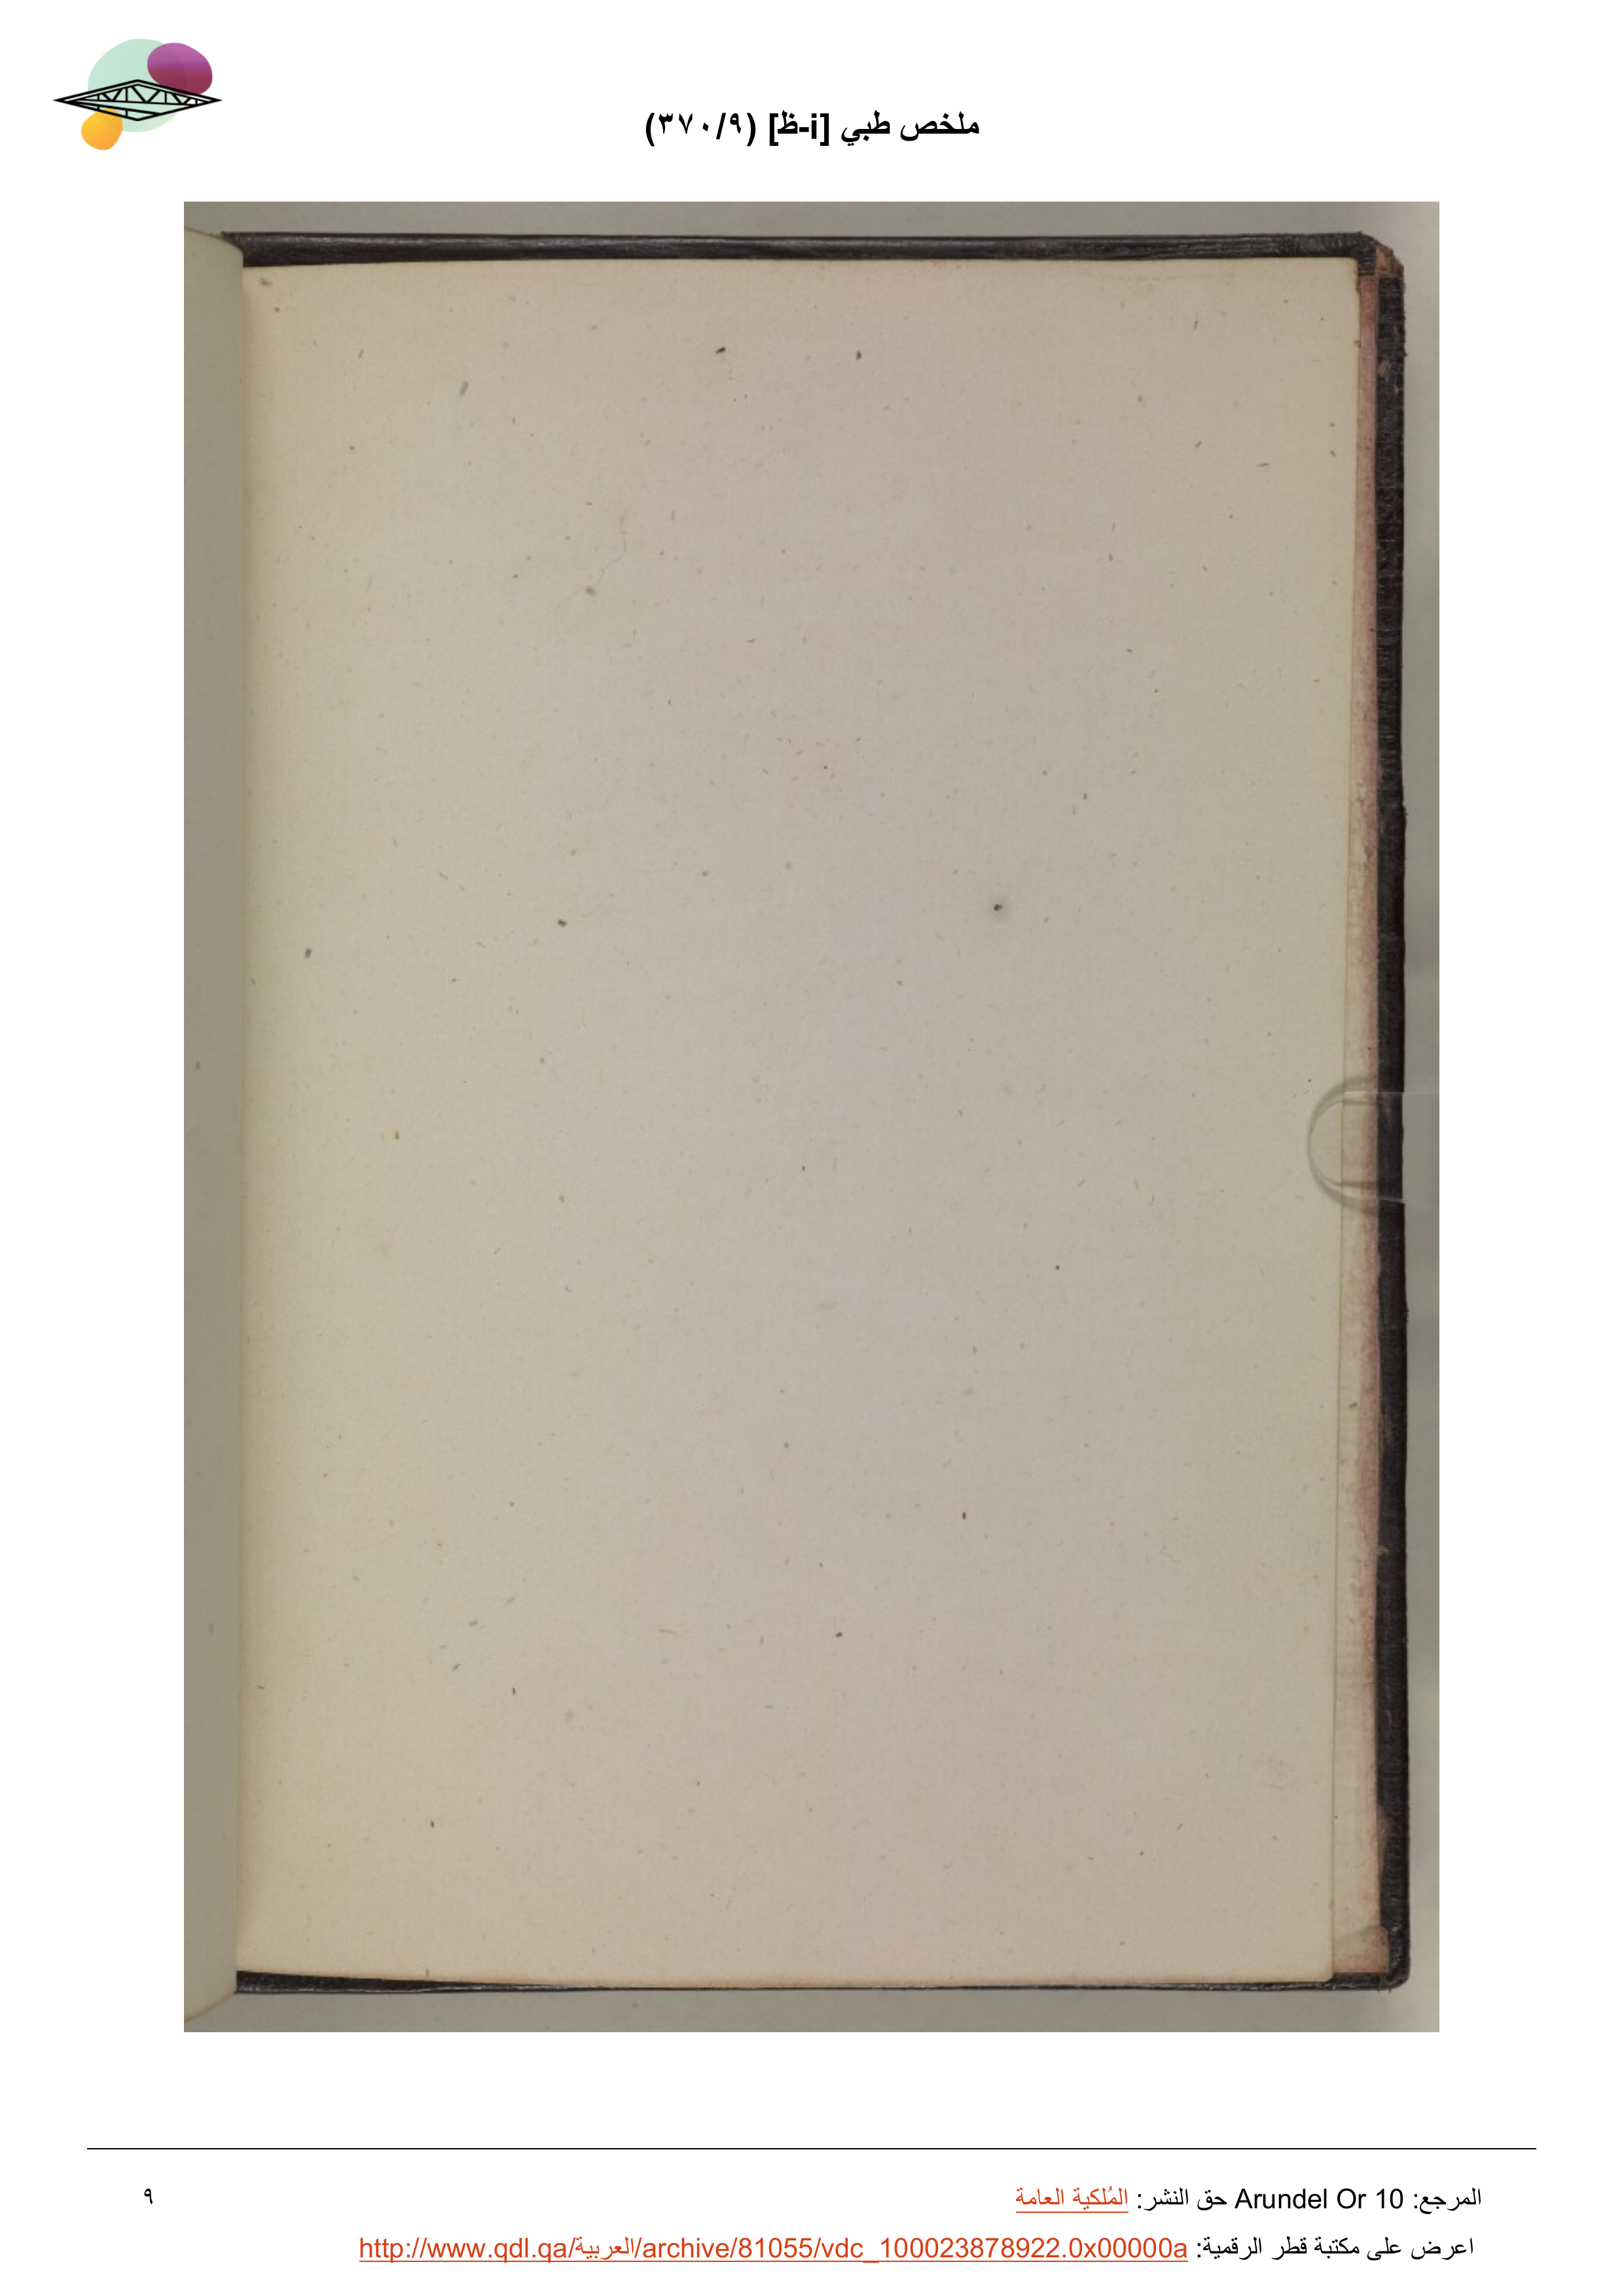 ملخص طبي [i-ظ] (٣٧٠/٩)
المرجع: Arundel Or 10 حق النشر: المُلكية العامة
٩
اعرض على مكتبة قطر الرقمية: http://www.qdl.qa/العربية/archive/81055/vdc_100023878922.0x00000a